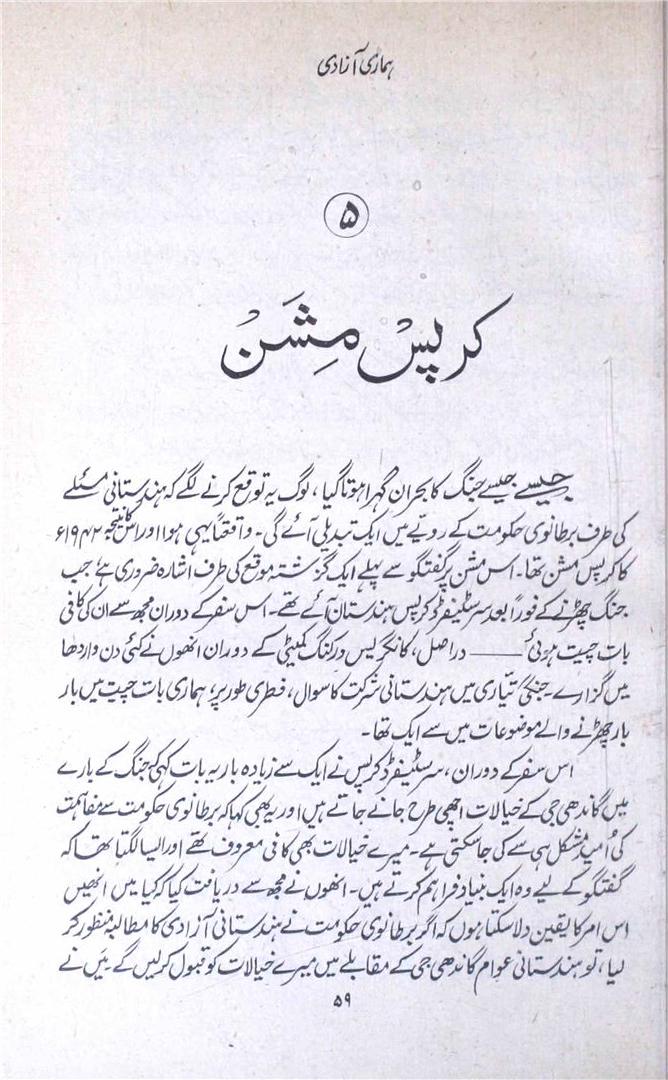 ہماری آزادی
۵
کرپس مِشَن
جیسے جیسے جنگ کا بحران گہرا ہوتا گیا، لوگ یہ توقع کرنے لگے کہ ہندستانی مسئلے
کی طرف برطانوی حکومت کے رویے میں ایک تبدیلی آئے گی۔ واقعتاً یہی ہوا اور اس کا نتیجہ ۱۹۴۲ء
کا کرپس مشن تھا۔ اس مشن پر گفتگو سے پہلے ایک گزشتہ موقع کی طرف اشارہ ضروری ہے، جب
جنگ چھڑنے کے فوراً بعد سر سٹیفرڈ کرپس ہندستان آئے تھے۔ اس سفر کے دوران مجھ سے ان کی کافی
بات چیت ہوئی ــــــــ دراصل، کانگریس ورکنگ کمیٹی کے دوران انھوں نے کئی دن واردھا
میں گزارے۔ جنگی تیّاری میں ہندستانی شرکت کا سوال، فطری طور پر، ہماری بات چیت میں بار
بار چھڑنے والے موضوعات میں سے ایک تھا۔
اس سفر کے دوران، سر سٹیفرڈ کرپس نے ایک سے زیادہ بار یہ بات کہی کہ جنگ کے بارے
میں گاندھی جی کے خیالات اچھی طرح جانے جاتے ہیں اور یہ بھی کہا کہ برطانوی حکومت سے مفاہمت
کی اُمید مشکل ہی سے کی جاسکتی ہے۔ میرے خیالات بھی کافی معروف تھے اور ایسا لگتا تھا کہ
گفتگو کے لیے وہ ایک بنیاد فراہم کرتے ہیں۔ انھوں نے مجھ سے دریافت کیا کہ کیا میں انھیں
اس امر کا یقین دلا سکتا ہوں کہ اگر برطانوی حکومت نے ہندستانی آزادی کا مطالبہ منظور کر
لیا، تو ہندستانی عوام گاندھی جی کے مقابلے میں میرے خیالات کو قبول کرلیں گے۔ میَں نے
۵۹